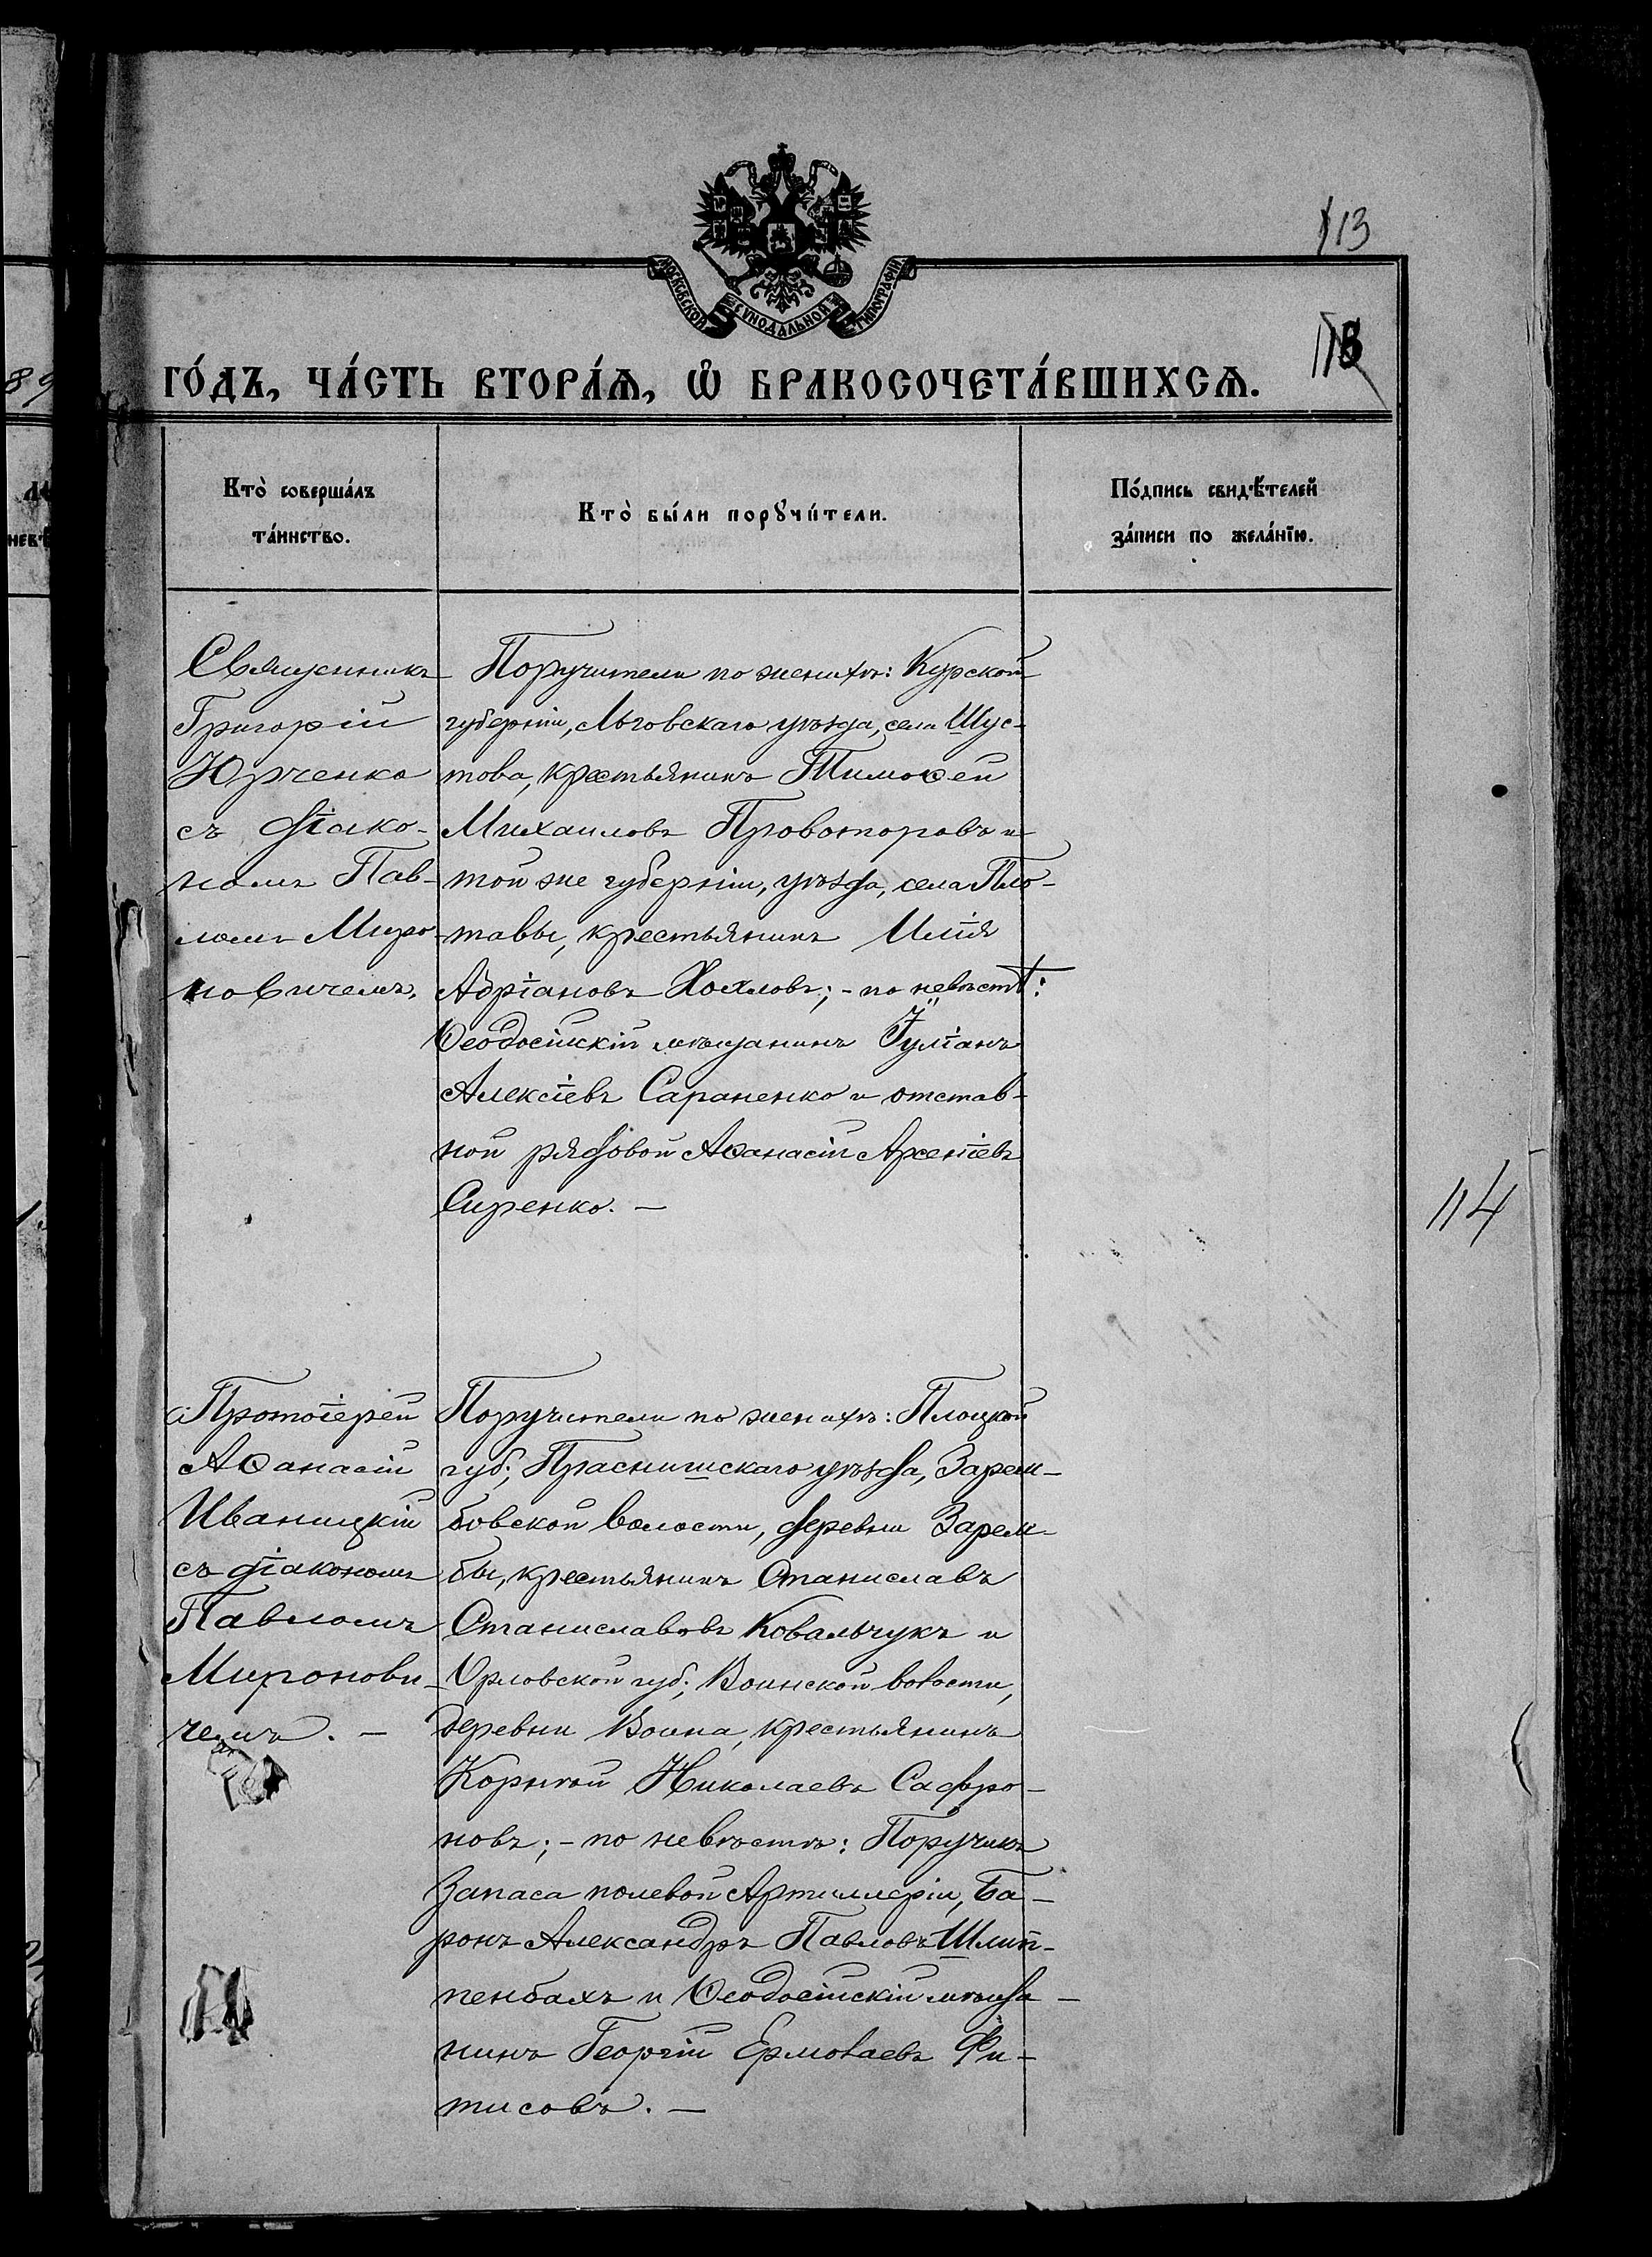 113
МОСКОВСКОЙ СѴНОДАЛЬНОЙ ТИПОГРАФІИ
89
ГО́ДЪ, ЧА́СТЬ ВТОРА́Ѧ, Ѽ БРАКОСОЧЕТА́ВШИХСѦ.
Кто̀ соверша́лъ
та́инство.
Кто̀ бы́ли порꙋчи́тели.
По́дпись свидѣ́телей
за́писи по жела́нїю.
Священникъ
Григорій
Юрченко
съ діако-
номъ Пав-
ломъ Миро-
новичемъ.
Поручители по женихѣ: Курской
губерніи, Льговскаго уѣзда, села Шус-
това, крестьянинъ Тимоѳей
Михаиловъ Провоторовъ и
той же губерніи, уѣзда, села Пло-
тавы, крестьянинъ Илія
Адріановъ Хохловъ; - по невѣстѣ:
Ѳеодосійскій мѣщанинъ Іуліанъ
Алексіевъ Сараненко и отстав-
ной рядовой Аѳанасій Арсеніевъ
Сиренко. —
114
Протоіерей
Аѳанасій
Иваницкій
съ діакономъ
Павломъ
Миронови-
чемъ. —
Поручители по женихѣ: Плоцкой
губ., Праснишскаго уѣзда, Зарем-
бовской волости, деревни Зарем-
бы, крестьянинъ Станиславъ
Станиславовъ Ковальчукъ и
Орловской губ., Воинской волости,
деревни Воина, крестьянинъ
Корнѣй Николаевъ Сафро-
новъ; - по невѣстѣ: Поручикъ
Запаса полевой Артиллеріи, Ба-
ронъ Александръ Павловъ Шлип-
пенбахъ и Ѳеодосійскій мѣща-
нинъ Георгій Ермолаевъ Фи-
тисовъ. —